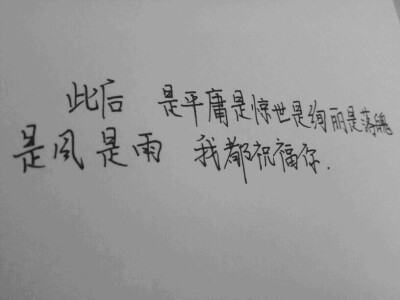 此后 是平庸是惊世是绚丽是落魄
是风是雨 我都祝福你.